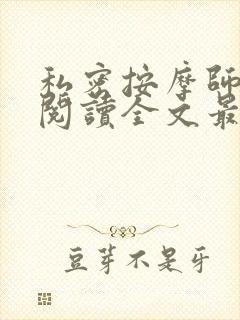 私密按摩師
閱讀全文最
豆芽不是牙